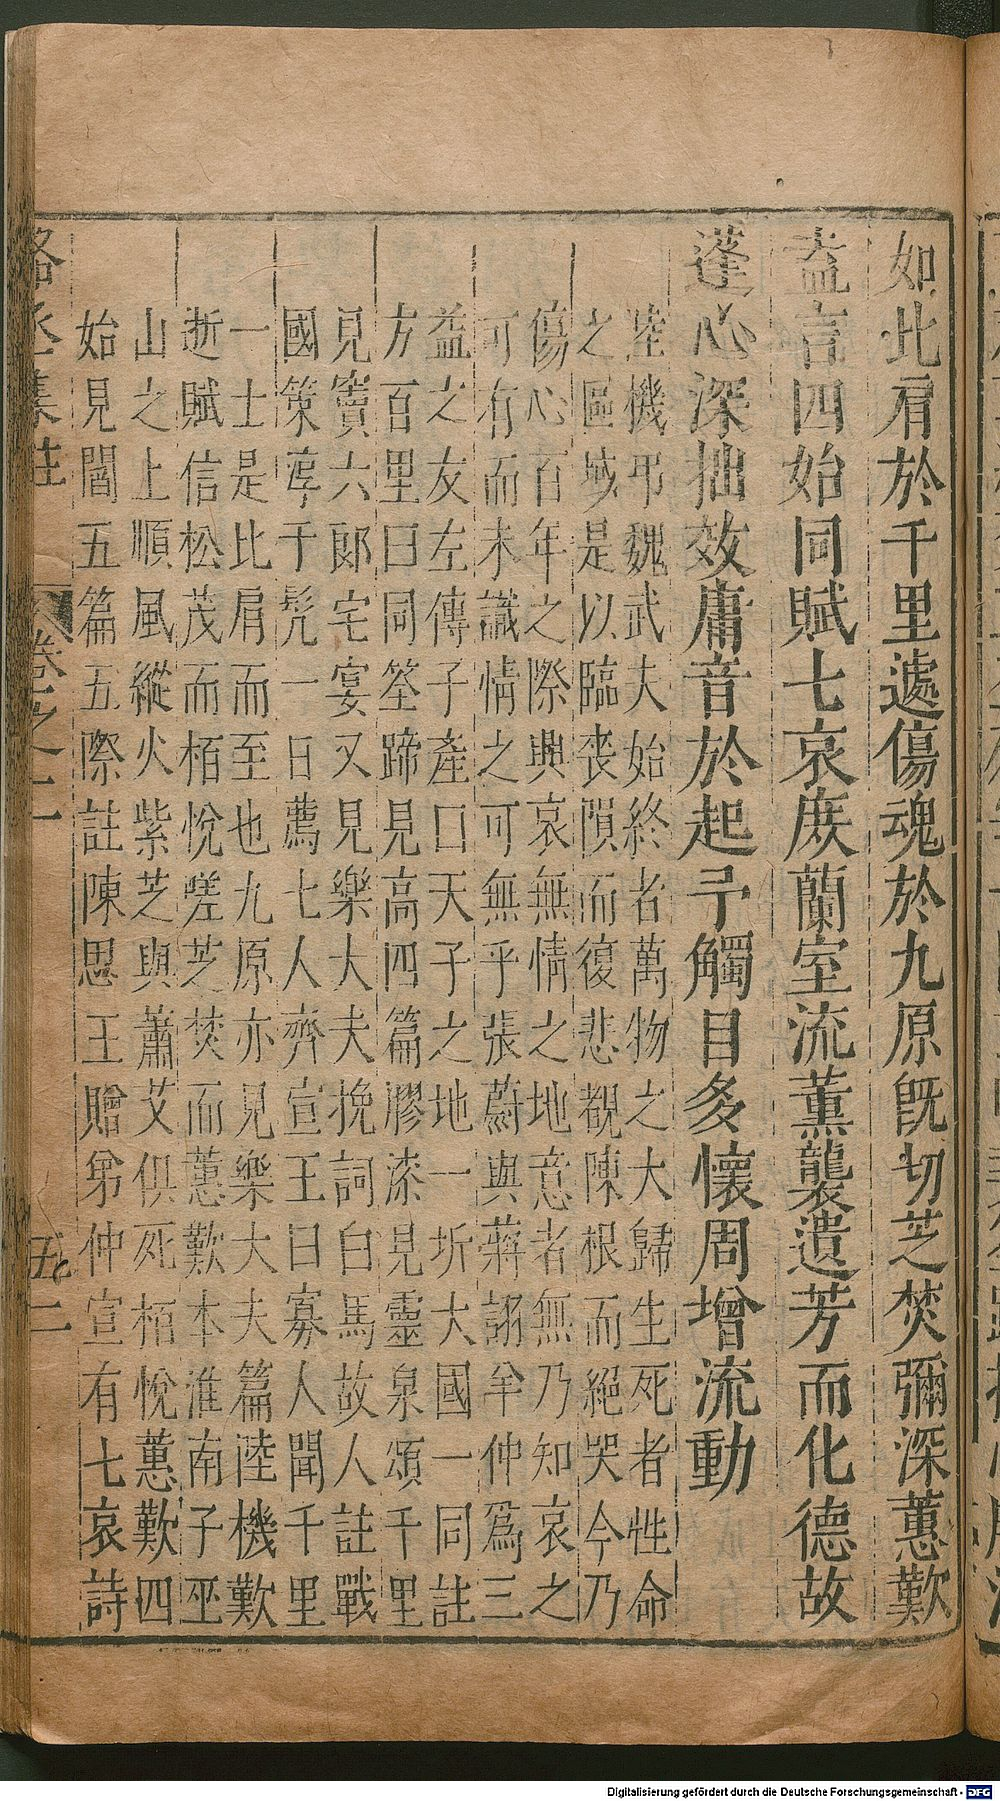 如此肩於千里遽傷魂於九原旣切芝焚彌深蕙歎
盍言四始同賦七哀庻蘭室流薰襲遺芳而化德故
蓬心深拙效庸音於起予觸目多懷周增流動
陸機弔魏武夫始終者萬物之大歸生死者性命
之區域是以臨喪殞而復悲覩陳根而絕哭今乃
傷心百年之際興哀無情之地意者無乃知哀之
可有而未識情之可無乎張蔚與蔣詡羊仲爲三
益之友左傳子產曰天子之地一圻大國一同註
方百里曰同筌蹄見高四篇膠漆見靈泉頌千里
見竇六郞宅宴又見樂大夫挽詞白馬故人註戰
國策淳于髠一日薦七人齊宣王曰寡人聞千里
一士是比肩而至也九原亦見樂大夫篇陸機歎
逝賦信松茂而栢悅嗟芝焚而蕙歎本淮南子巫
山之上順風縱火紫芝與蕭艾俱死栢悅蕙歎四
始見閻五篇五際註陳思王贈弟仲宣有七哀詩
駱丞集註 卷之二 二
Digitalisierung gefördert durch die Deutsche Forschungsgemeinschaft - DFG